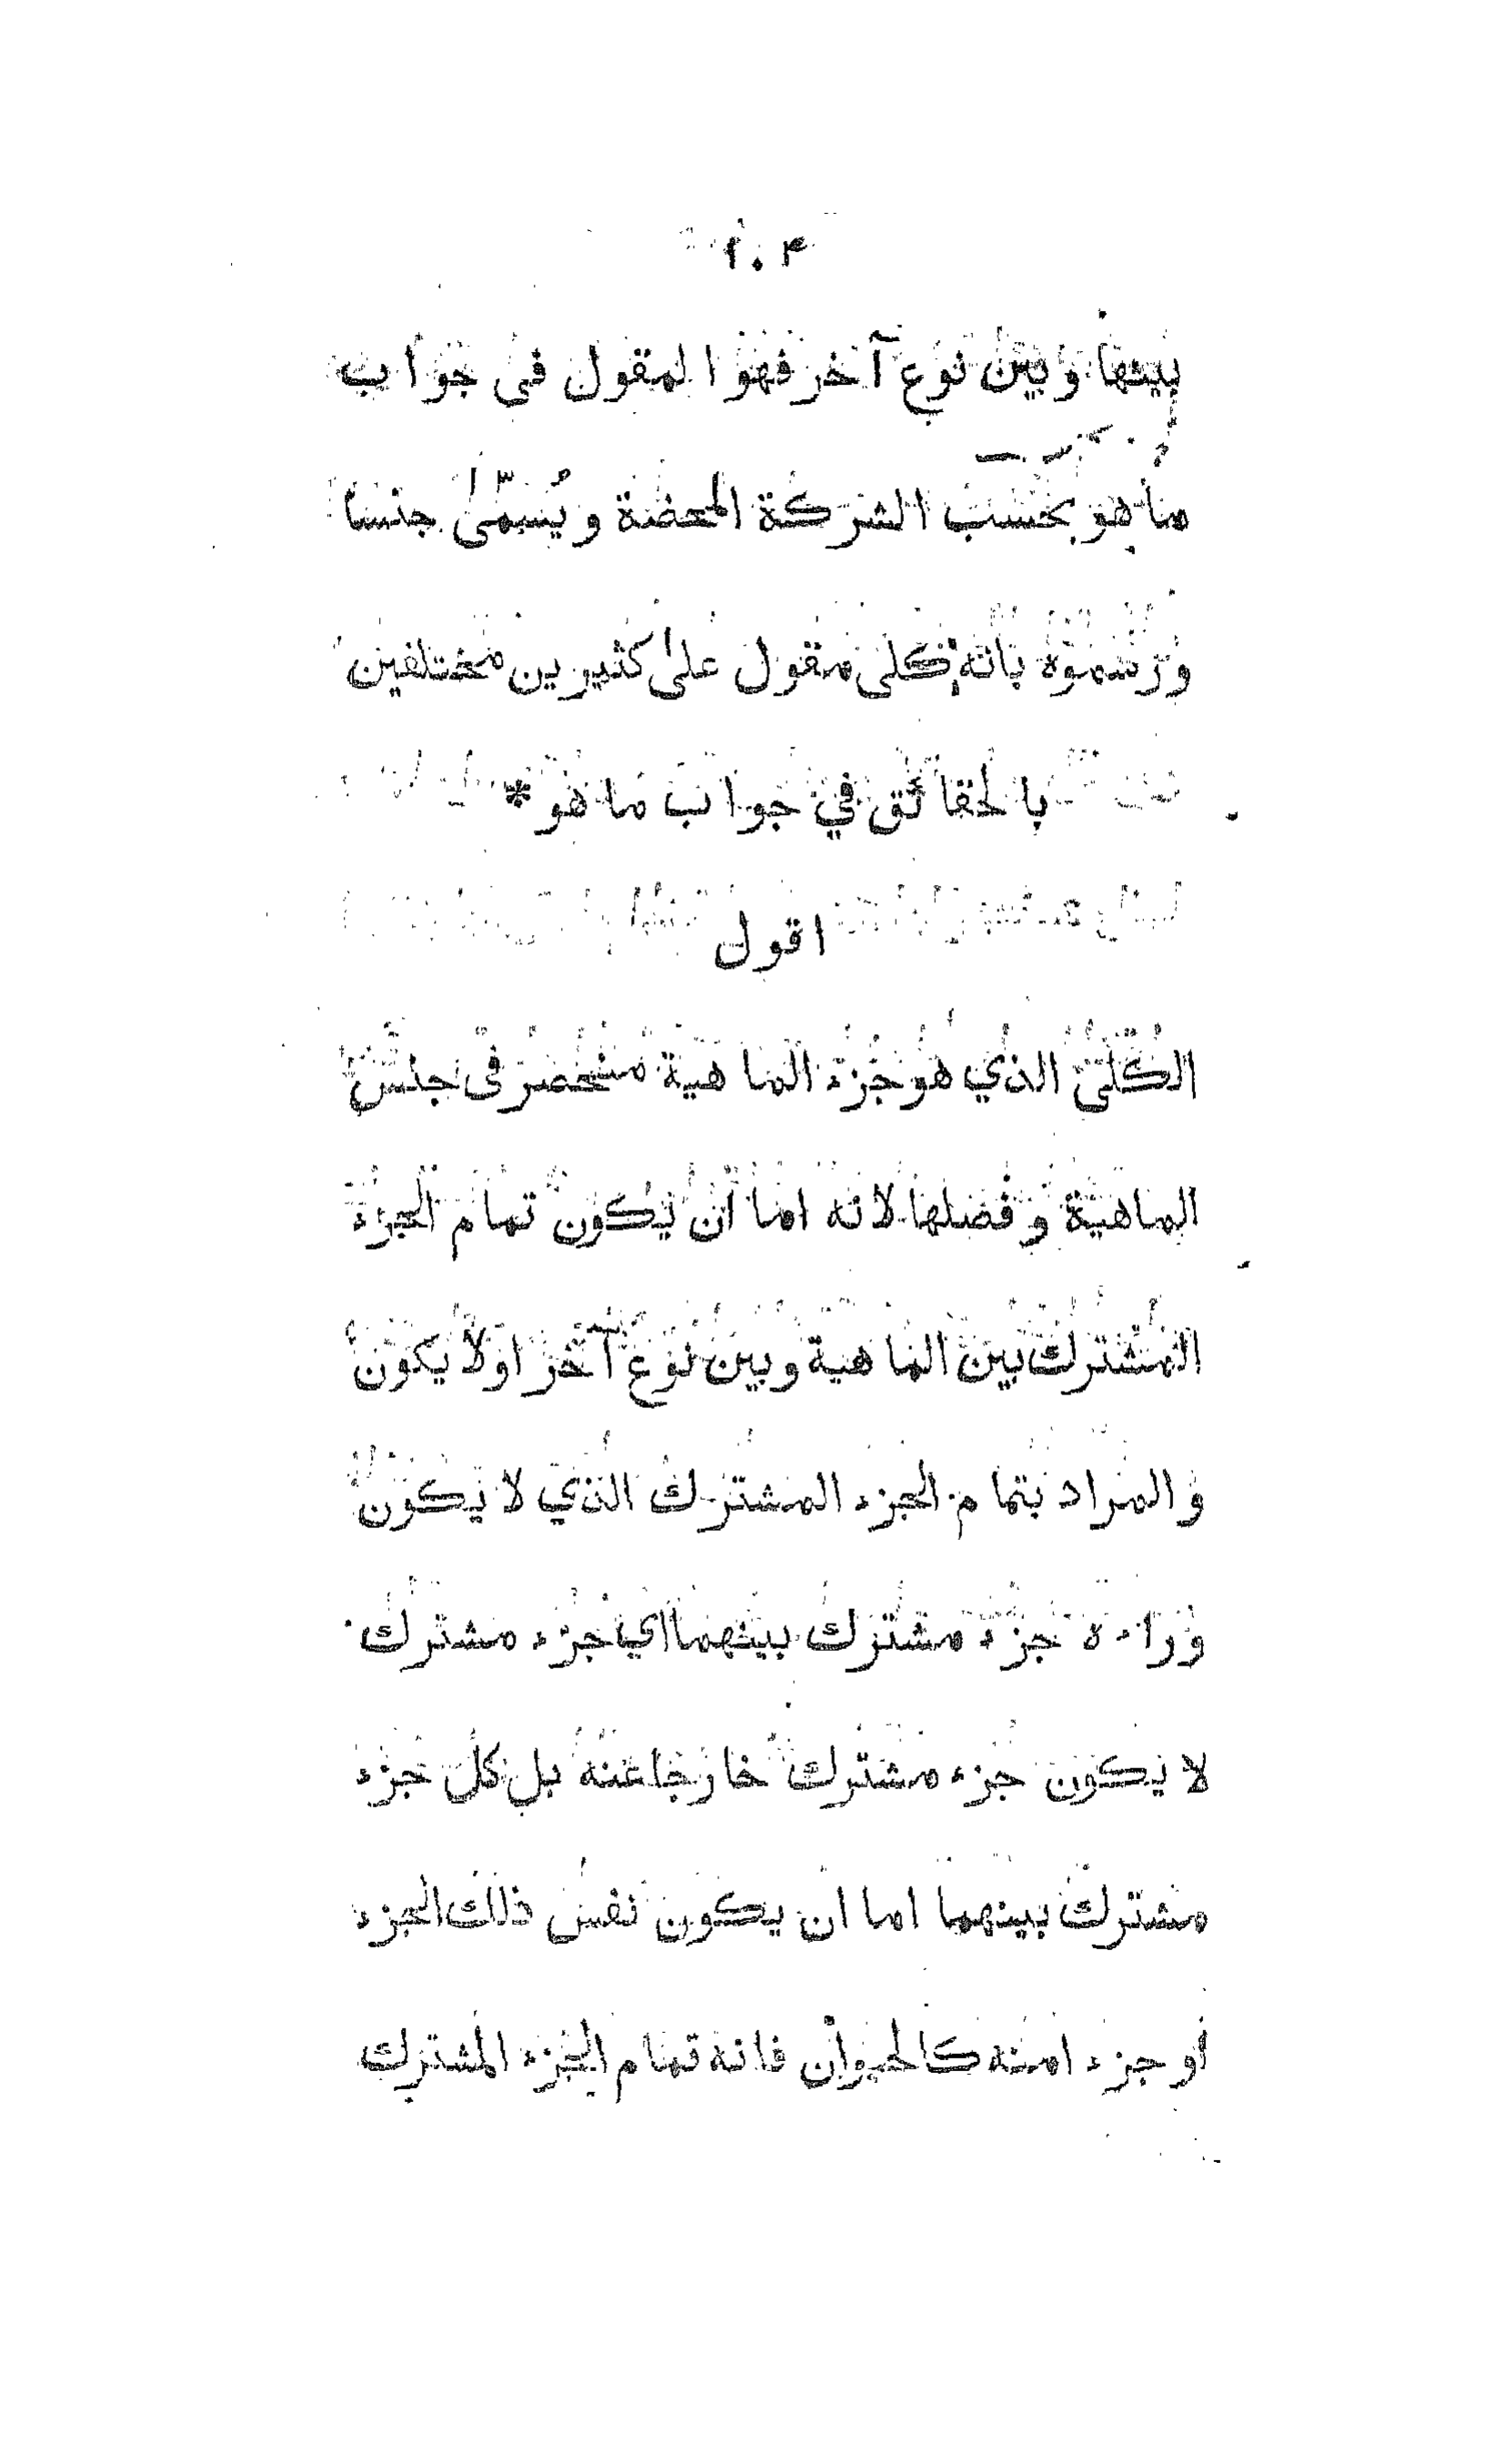 ١٠۴
بينها وبين نوع آخر فهو المقول فى جواب
ما هو بحسب الشركة المحضة ويُسمّى جنسا
ورسموه بانه كلى مقول على كثيرين مختلفين
بالحقائق في جواب ما هو *
اقول
الكلّى الذي هو جزء الماهية منحصر فى جنس
الماهية و فصلها لانه اما ان يكون تمام الجزء
المشترك بين الماهية وبين نوع آخر اولا يكون
والمراد بتمام الجزء المشترك الذي لا يكون
وراءه جزء مشترك بينهما اي جزء مشترك
لا يكون جزء مشترك خارجا عنه بل كل جزء
مشترك بينهما اما ان يكون نفس ذلك الجزء
او جزء امنه كالحيوان فانه تمام الجزء المشترك